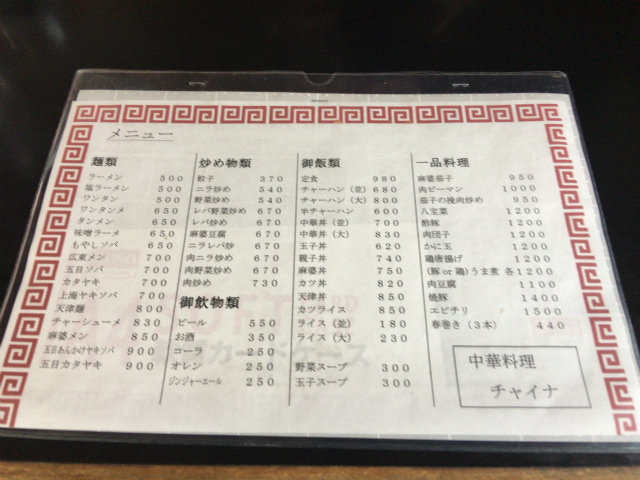 メニュー
麺類
ラーメン 500
塩ラーメン 500
ワンタン 500
ワンタンメ 650
タンメン 650
味噌ラーメ 650
もやしソバ 650
広東メン 700
五目ソバ 700
カタヤキ 700
上海ヤキソバ 700
天津麺 800
チャーシューメ 830
麻婆メン 850
五目あんかけヤキソバ 900
五目カタヤキ 900
炒め物類
餃子 370
ニラ炒め 540
野菜炒め 540
レバ野菜炒め 670
レバ炒め 670
麻婆豆腐 670
ニラレバ炒 670
肉ニラ炒め 670
肉野菜炒め 670
肉炒め 730
御飲物類
ビール 550
お酒 350
コーラ 250
オレン 250
ジンジャーエール 250
御飯類
定食 980
チャーハン（並） 680
チャーハン（大） 800
半チャーハン 600
中華丼（並） 700
中華丼（大） 820
玉子丼 620
親子丼 740
麻婆丼 750
カツ丼 820
天津丼 850
カツライス 850
ライス（並） 180
ライス（大） 230
野菜スープ 300
玉子スープ 300
一品料理
麻婆茄子 950
肉ピーマン 1000
茄子の挽肉炒め 950
八宝菜 1200
酢豚 1200
肉団子 1200
かに玉 1200
鶏唐揚げ 1200
（豚or鶏）うま煮 各1200
肉豆腐 1100
焼豚 1400
エビチリ 1500
春巻き（3本） 440
中華料理
チャイナ